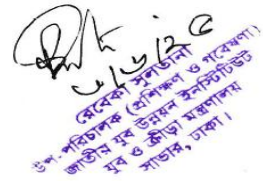 ৮/৮/২৫
রেবেকা সুলতানা
উপ-পরিচালক (প্রশিক্ষণ ও গবেষণা)
জাতীয় যুব উন্নয়ন ইনস্টিটিউট
যুব ও ক্রীড়া মন্ত্রণালয়
সাভার, ঢাকা।